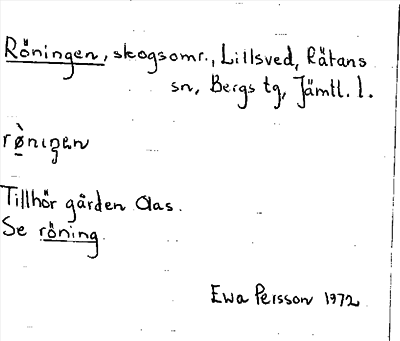 Röningen, skogsomr., Lillsved, Rätans
sn, Bergs tg, Jämtl. l.
rö̀nıŋen
Tillhör gården Olas.
Se röning.
Ewa Persson 1972